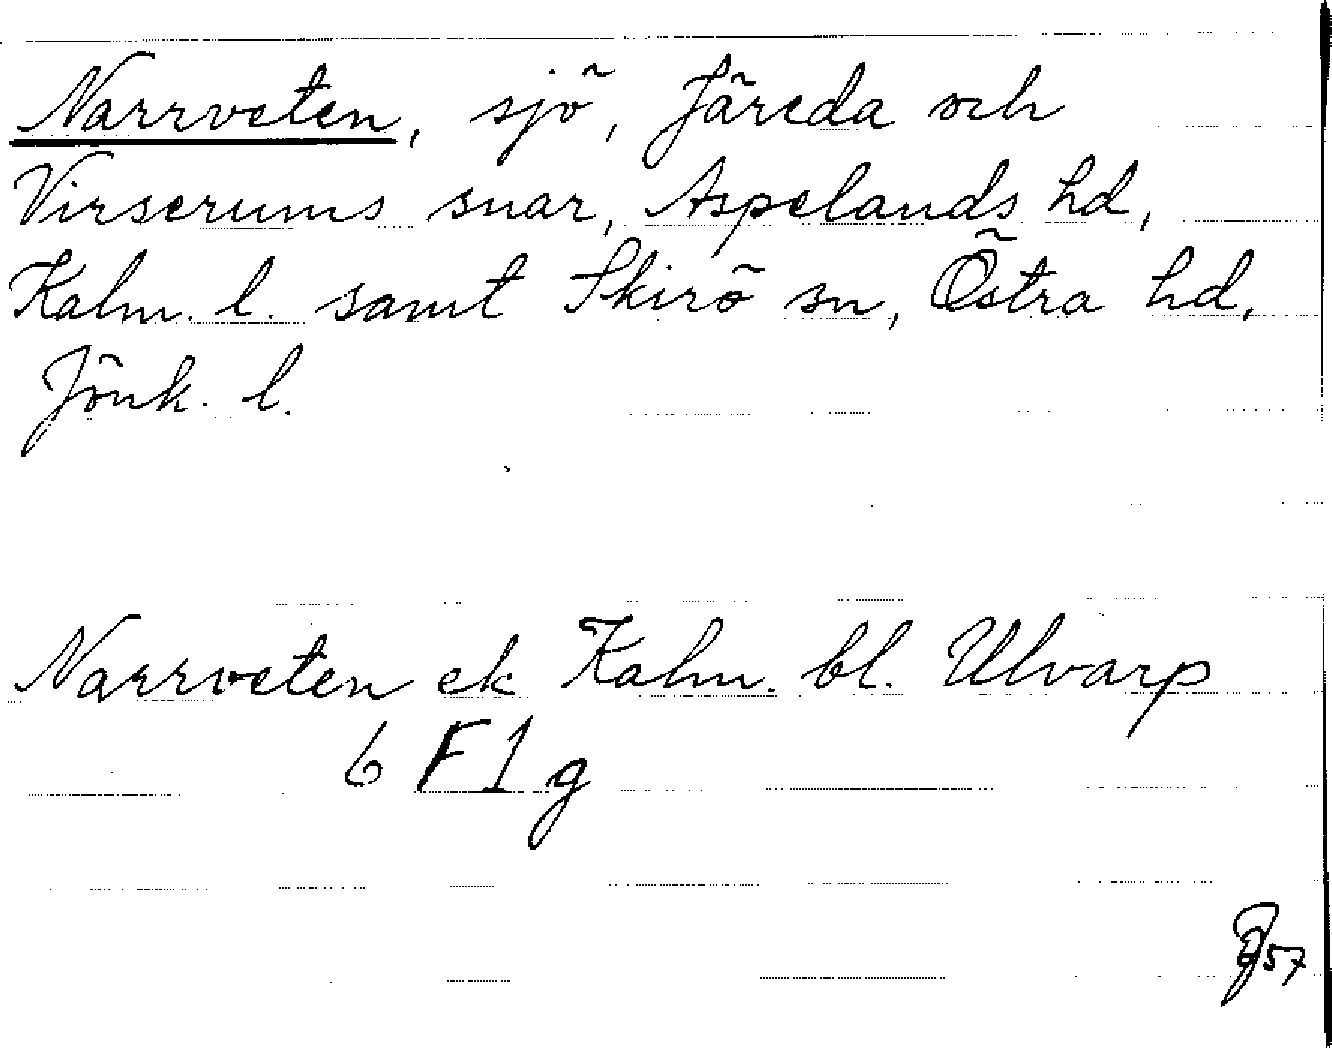 Narrveten, sjö, Järeda och
Virserums snar, Aspelands hd,
Kalm. l. samt Skirö sn, Östra hd,
Jönk. l.
Narrveten ek Kalm. bl. Ulvarp
6 F 1 g
57